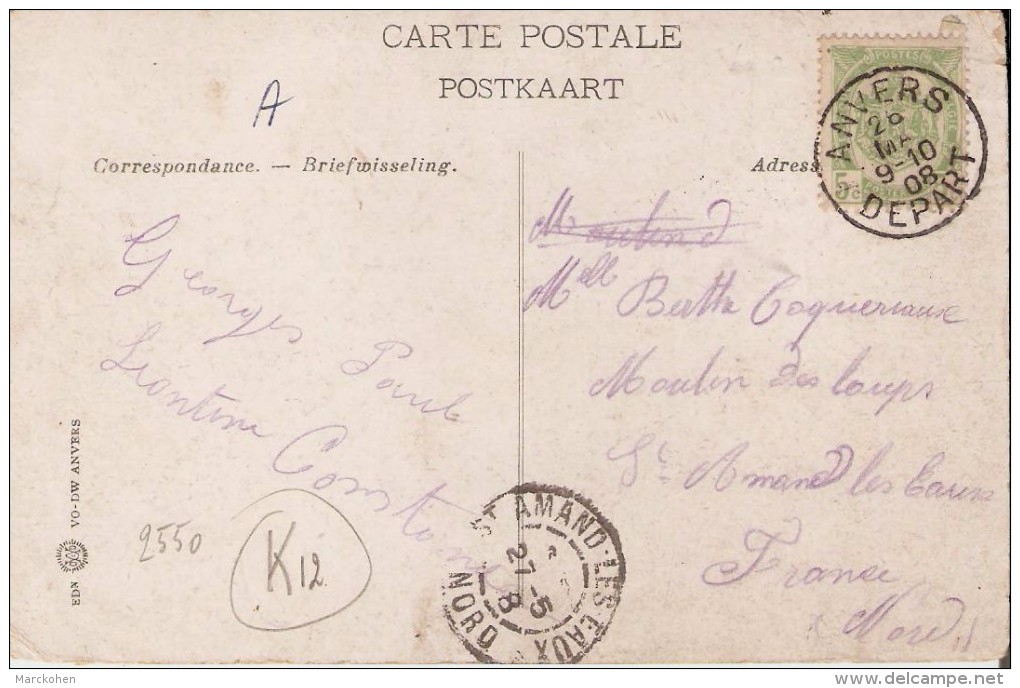 CARTE POSTALE
POSTKAART
A
Correspondance. — Briefwisseling.
Adress
POSTES
5c
ANVERS
26
MA
9-10
08
DEPART
Moulin
Mell Berthe Coqueriaux
Moulin des loups
St Amand les Eaux
France
Nord
Georges
Paul
Léontine
Constant
EDN VO-DW ANVERS
2550
K12
ST AMAND-LES-EAUX
27-5
8
NORD
Marckohen